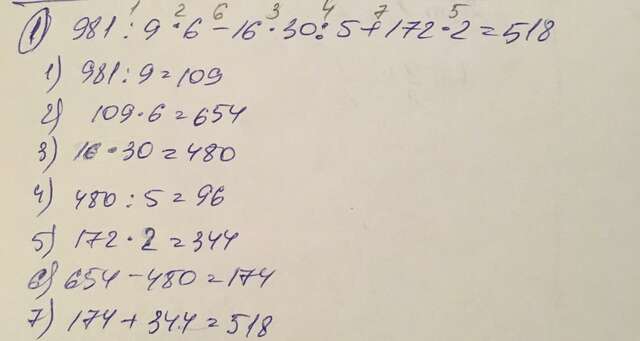 1 2 6 3 4 7 5
① 981 : 9 · 6 - 16 · 30 : 5 + 172 · 2 = 518
1) 981 : 9 = 109
2) 109 · 6 = 654
3) 16 · 30 = 480
4) 480 : 5 = 96
5) 172 · 2 = 344
6) 654 - 480 = 174
7) 174 + 344 = 518